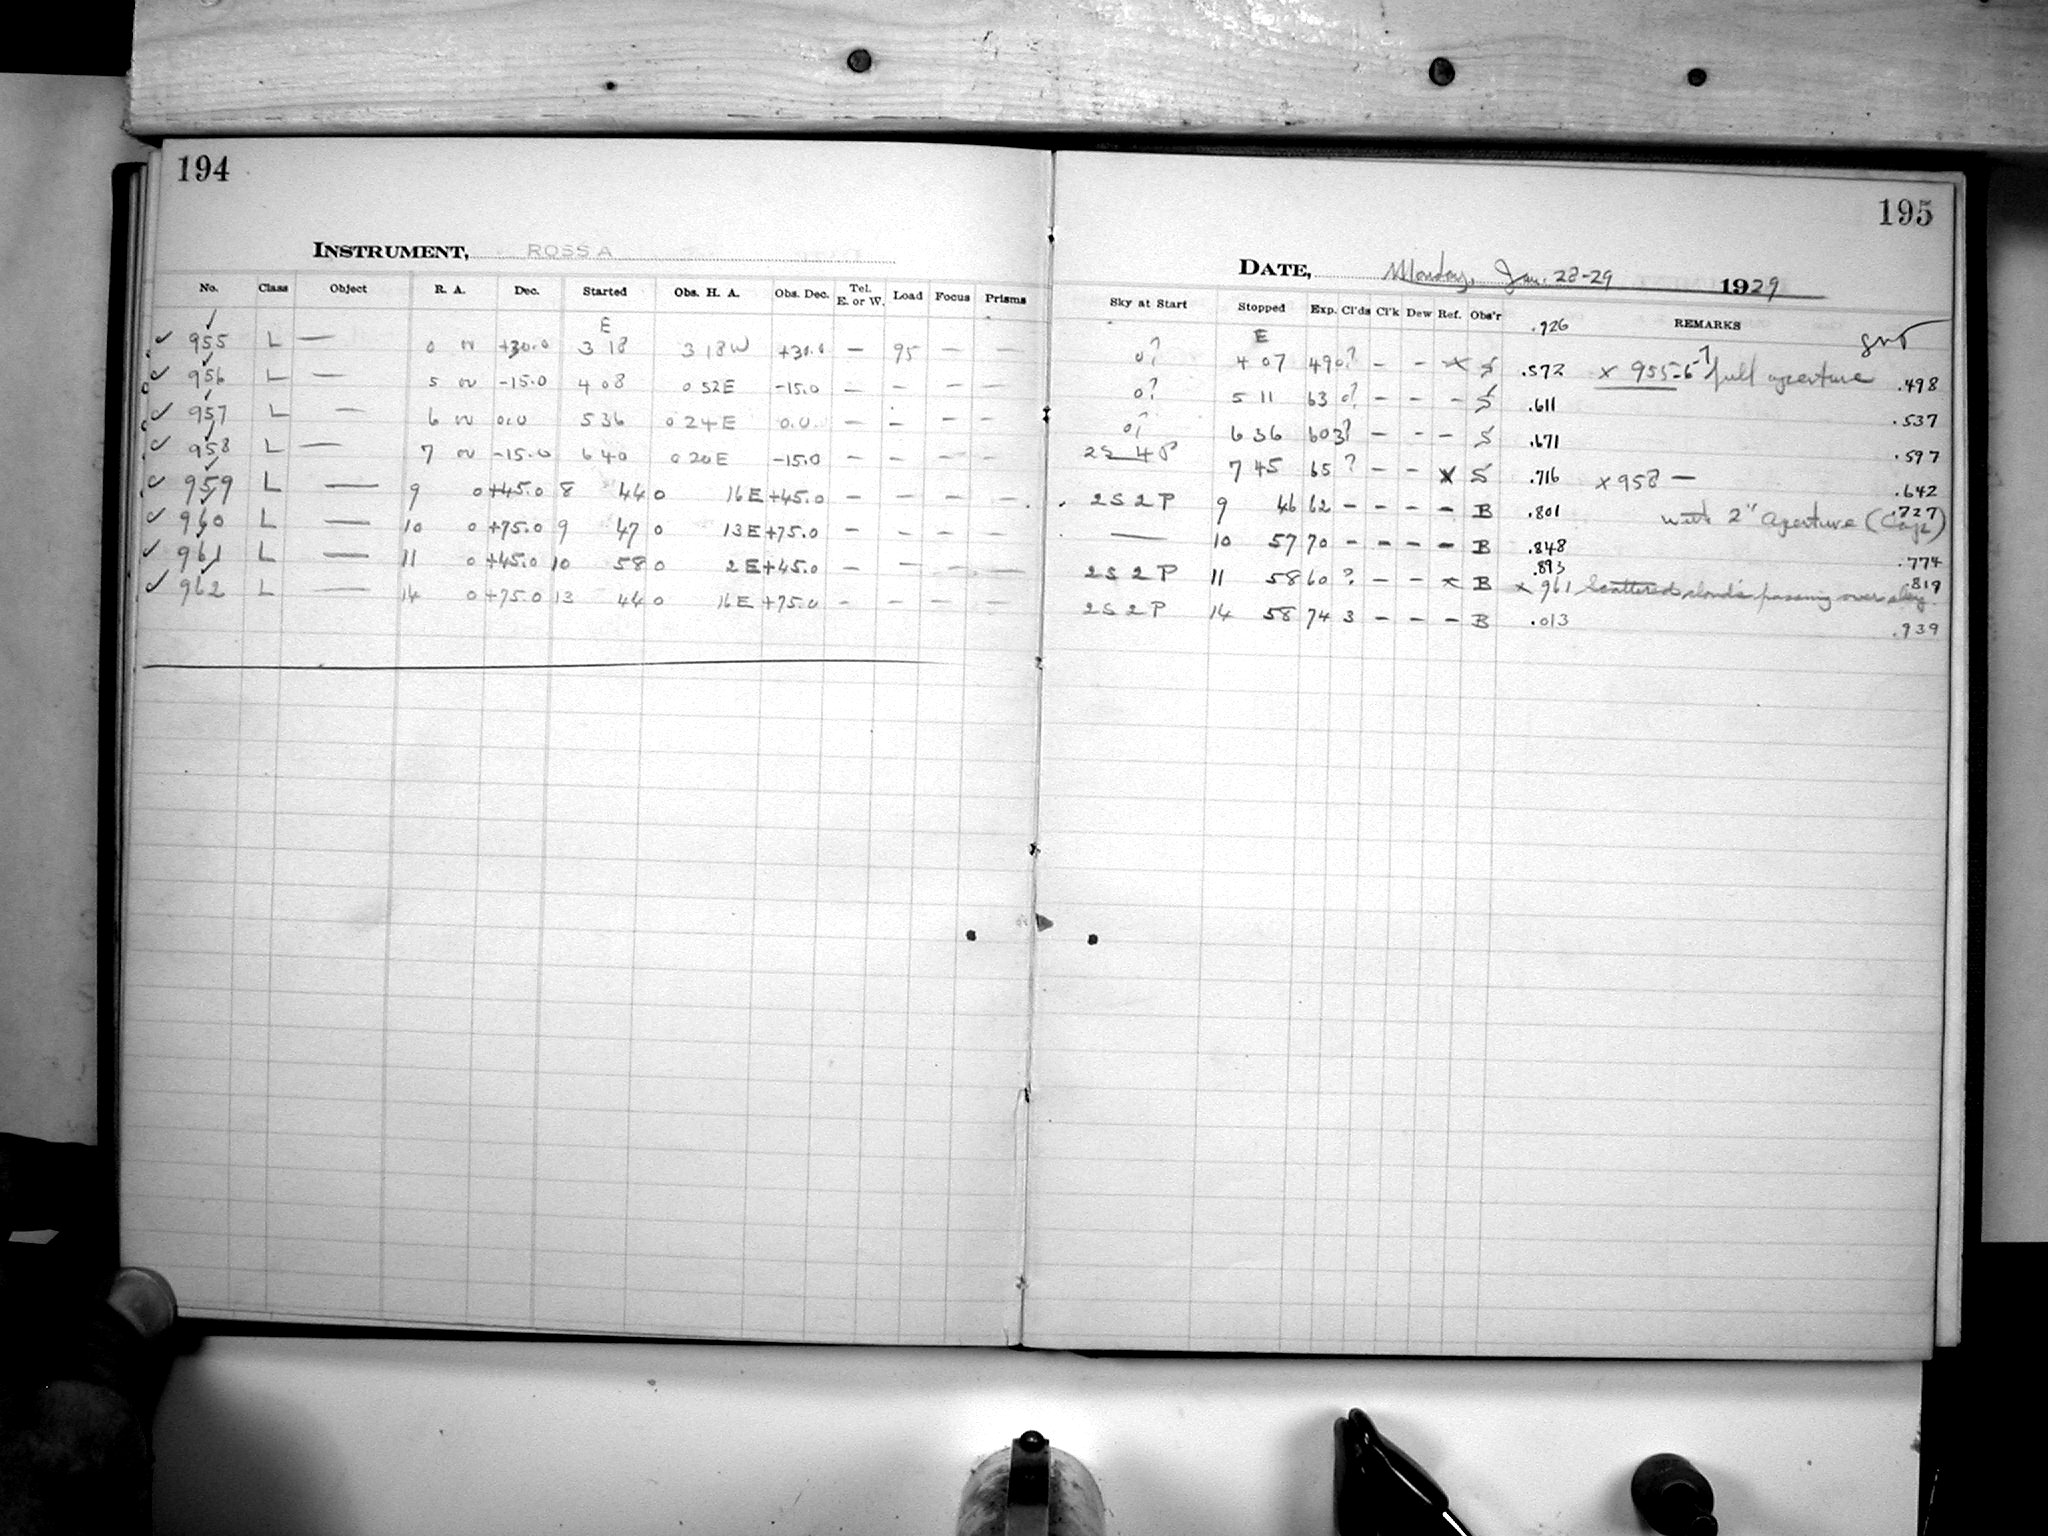 194
INSTRUMENT, ROSS A
No. Class Object R. A. Dec. Started Obs. H. A. Obs. Dec. Tel. E. or W. Load Focus Prisms
E
955 L — 0 +30.0 3 18 3 18W +30.0 — 95 — —
956 L — 5 -15.0 4 08 0 52E -15.0 — — — —
957 L — 6 0.0 5 36 0 24E 0.0 — — — —
958 L — 7 -15.0 6 40 0 20E -15.0 — — — —
959 L — 9 0 +45.0 8 44 0 16E +45.0 — — — —
960 L — 10 0 +75.0 9 47 0 13E +75.0 — — — —
961 L — 11 0 +45.0 10 58 0 2E +45.0 — — — —
962 L — 14 0 +75.0 13 44 0 16E +75.0 — — — —
195
DATE, Monday, Jan. 28-29 1929
Sky at Start Stopped Exp. Cl'ds Cl'k Dew Ref. Obs'r .926 REMARKS
E
0? 4 07 49 0? — — x S .572 x 955-6-7 full aperture .498
0? 5 11 63 0? — — — S .611 .537
0? 6 36 60 3? — — — S .671 .597
2S 4P 7 45 65 ? — — x S .716 x 958 — .642
2S 2P 9 46 62 — — — — B .801 with 2" aperture (Cap) .727
— 10 57 70 — — — — B .848 .774
2S 2P 11 58 60 ? — — x B .893 x 961 Scattered clouds passing over sky. .819
2S 2P 14 58 74 3 — — — B .013 .939